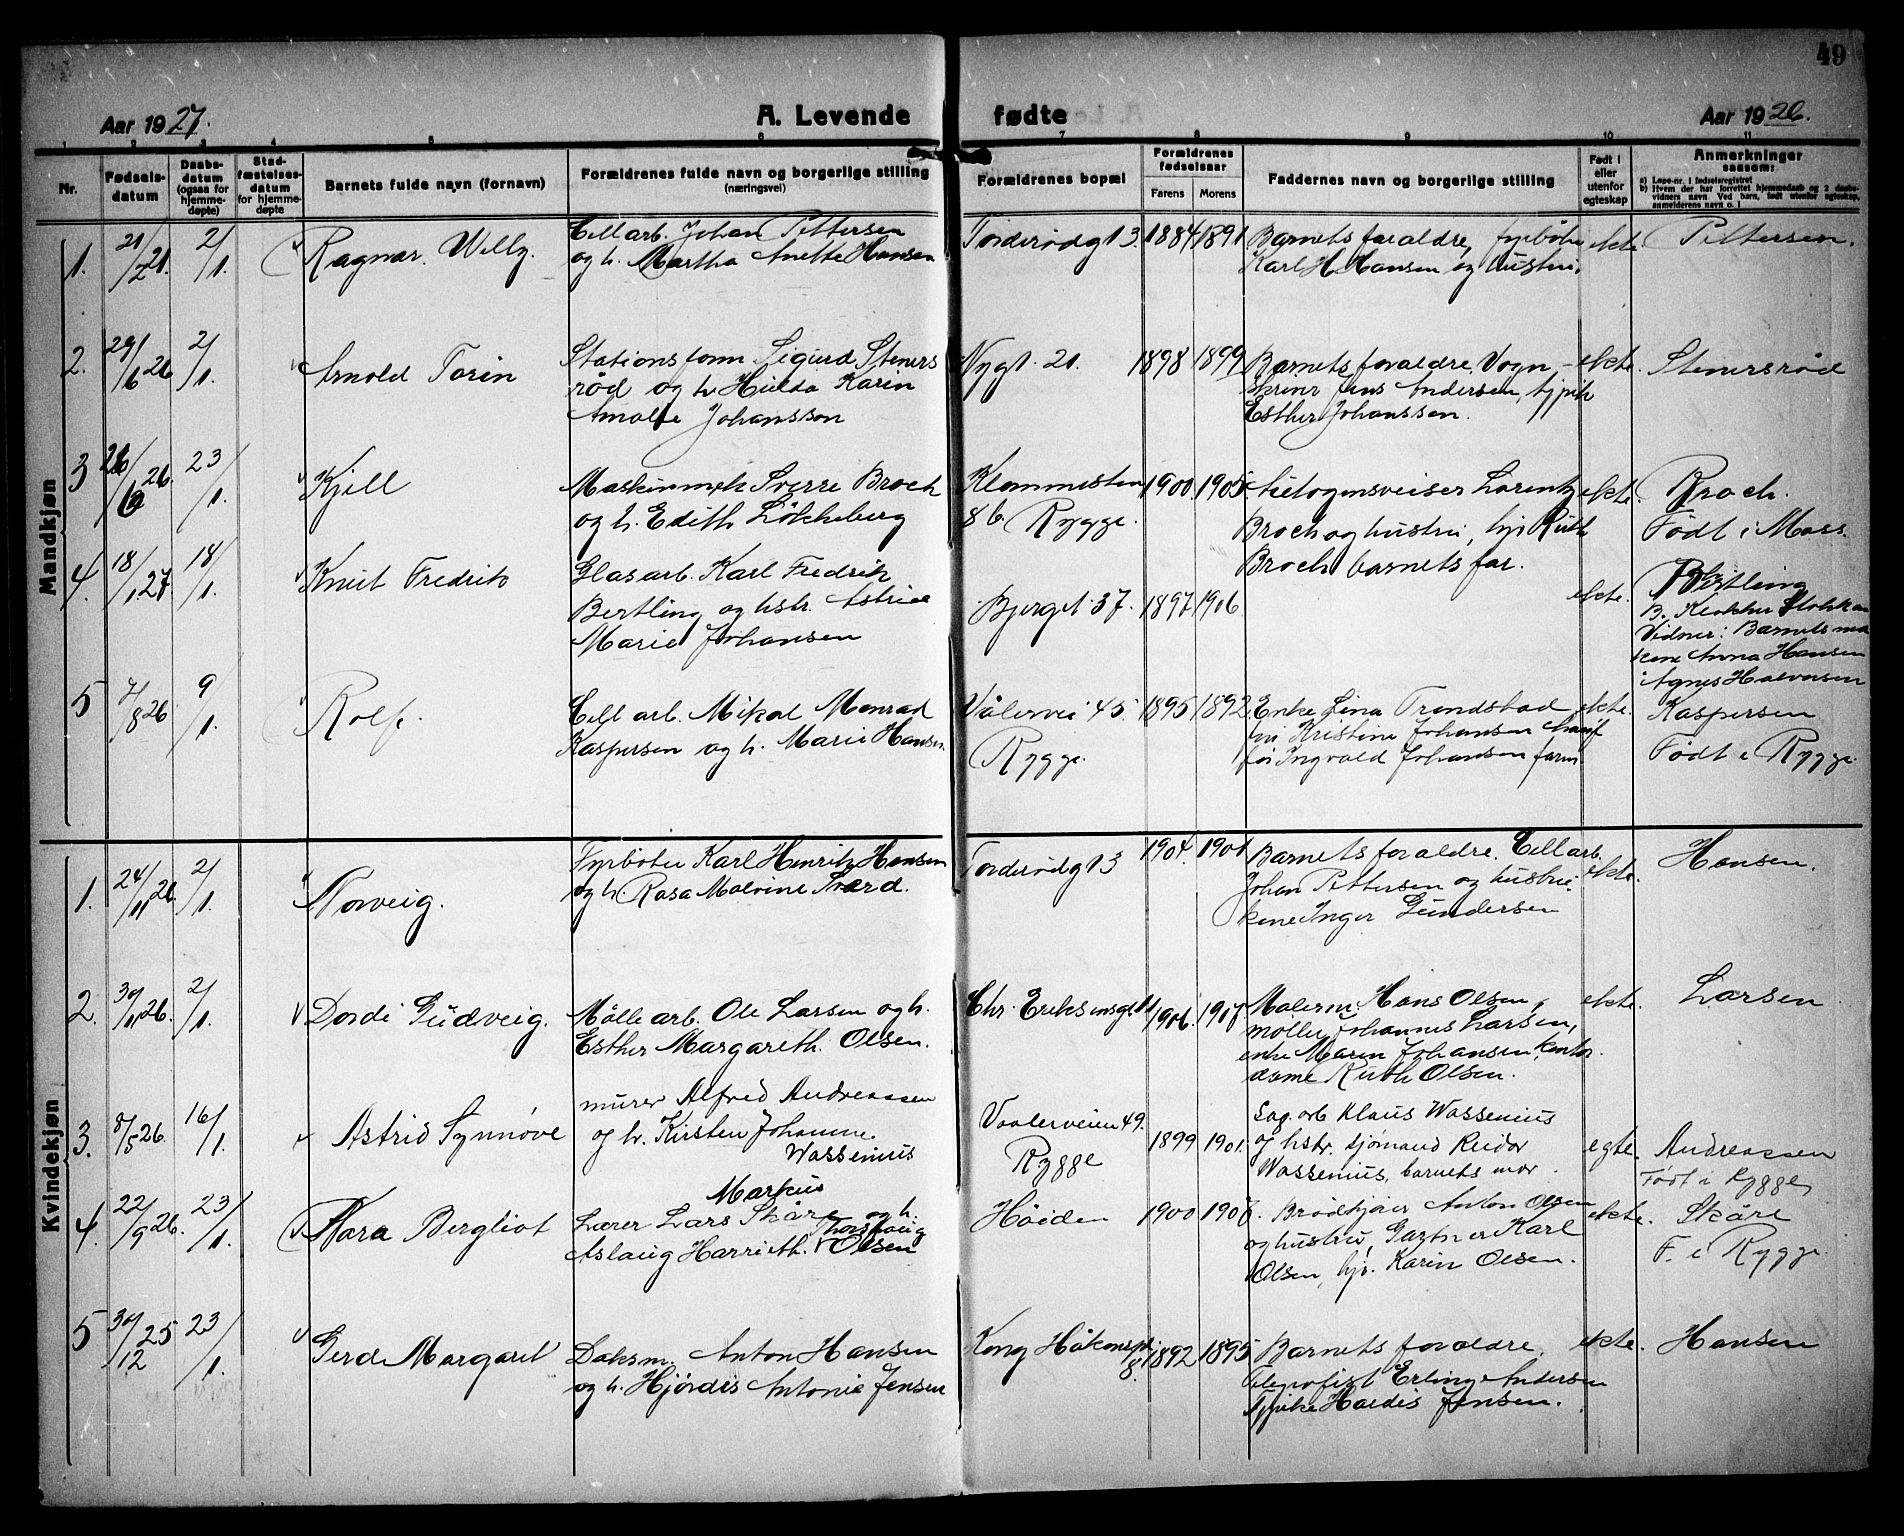 49
Aar 1927.
A. Levende
fødte
Aar 1926.
1 2 3 4 5 6 7 8 9 10 11
Nr.
Fødsels-
datum
Daabs-
datum
(ogsaa for
hjemme-
døpte)
Stad-
fæstelses-
datum
for hjemme-
døpte
Barnets fulde navn (fornavn)
Forældrenes fulde navn og borgerlige stilling
(næringsvei)
Forældrenes bopæl
Forældrenes
fødselsaar
Farens
Morens
Faddernes navn og borgerlige stilling
Født i
eller
utenfor
egteskap
Anmerkninger
saasom:
a) Løpe-nr. i fødselsregistret
b) Hvem der har forrettet hjemmedaab og 2 daabs-
vidners navn Ved barn, født utenfor egteskap,
anmelderens navn o. l
Mandkjøn
1.
2/1.
Ragnar. Willy.
Cellarb. Johan Pettersen
og h. Martha Anette Hansen
Torderødgt 3
1884
1891
Barnets foraldre, fyrbøter
Karl H. Hansen og hustru.
ekte
Pettersen.
2.
29/6 26
2/1.
Arnold Torin
Stationsform Sigurd Steners
rød og h Hulda Karen
Amalie Johansson
Nygt. 21.
1898
1899
Barnets foraldre, Vogn-
skriver Jens Andersen, hjph
Esther Johanssen.
ekte.
Stenersrød
3
26.
23/1.
Kjell
Maskinmek Sverre Broch
og h. Edith Løkkeberg
86. Rygge.
1900.
1905
Autogensveiser Lorentz
Broch og hustru, hjv Ruth
Broch barnets far.
ekte.
Broch.
Født i Moss.
4.
18/1.27.
18/1.
Knut Fredrik
Glasarb. Karl Fredrik
Bertling og hstr. Astrid
Marie Johansen
Bjerget 37.
1897
1906
ekte.
Bertling
Vidner: Barnets mor
Anna Hansen
Agnes Halvorsen
5
7/8 26
9/1.
Rolf.
Cellarb. Mikal Monrad
Kaspersen og h. Marie Hansen.
Vålervei 45.
Rygge.
1895
1892
Enke Lina Trondstad
Kristine Johansen
Ingvald Johansen farm
ekte.
Kaspersen
Født i Rygge.
Kvindekjøn
1.
24/11 26.
2/1.
Norveig.
Fyrbøter Karl Henrik Hansen
og h. Rosa Malvine Sverd.
Torderødgt 3
1904.
1901
Barnets foraldre. Cellarb.
Johan Pettersen og hustru.
Inger Gundersen
ekte.
Hansen.
2.
30/11 26.
2/1.
Dordi Gudveig.
Møllearb. Ole Larsen og h.
Esther Margareth. Olsen.
Chr. Eriksensgt 11
1906.
1907
Malerm. Hans Olsen,
møller Johannes Larsen,
enke Maren Johansen, kontor.
dame Ruth Olsen.
ekte.
Larsen
3.
8/5 26.
16/1
Astrid Synnøve
murer Alfred Andreassen
og h. Kirsten Johanne.
Wassenius
Vaalerveien 49.
Rygge
1899
1901.
Sag. arb Klaus Wassenius
og hstr. sjømand Reidar
Wassenius, barnets mor.
egte.
Andreassen
Født i Rygge
4.
22/9 26.
23/1.
Nora Bergliot
Markus
Lærer Lars Skåre og h.
Thorslaug
Aslaug Harrieth. Olsen
Høiden
1900
Brødkjører Anton Olsen
og hustru, Gartner Karl
Olsen, hjv. Karin Olsen.
ekte.
Skåre
F. i Rygge.
5
30/12 25
23/1.
Gerd Margaret
Daksm. Anton Hansen
og h. Hjørdis Antonie Jensen
Kong Håkonspl
8.
1892
1895
Barnets foraldre.
Telegrafist Erling Andersen
Hordis Jensen.
ekte.
Hansen